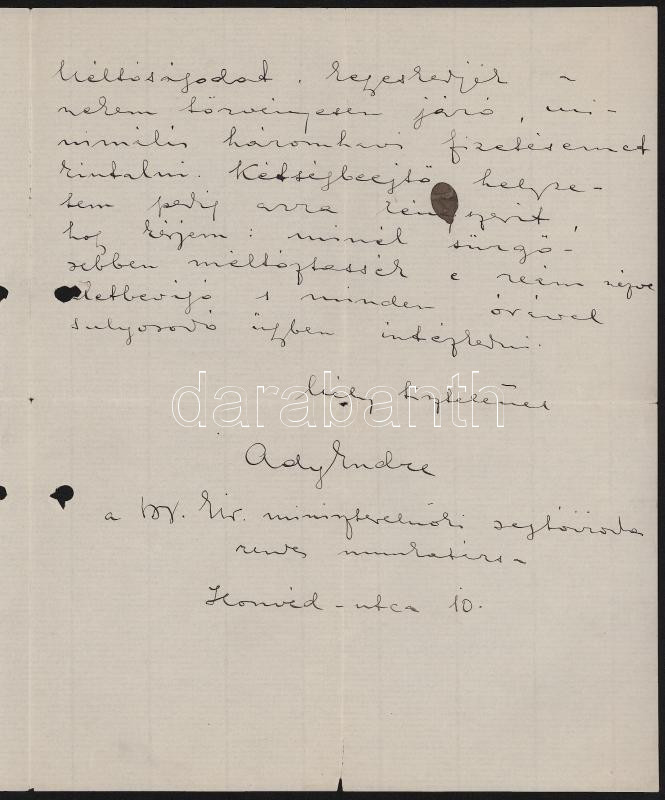 Méltóságodat, kegyeskedjék a
nekem törvényesen járó, mi-
nimális háromhavi fizetésemet
kiutalni. Kétségbeejtő helyze-
tem pedig arra kényszerit,
hog kérjem: minél sürgő-
sebben méltóztassék e reám nézve
életbevágó s minden órával
sulyosodó ügyben intézkedni.
Mély tisztelettel
darabanth
Ady Endre
a M. Kir. miniszterelnöki sajtóiroda
rendes munkatársa
Honvéd-utca 10.